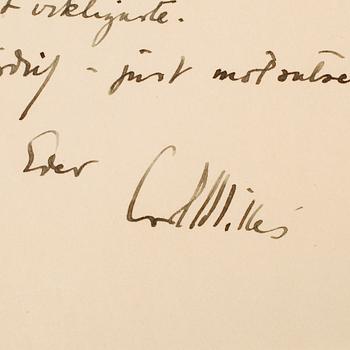 t verkligaste.
– just motsatse
Eder
Carl Milles